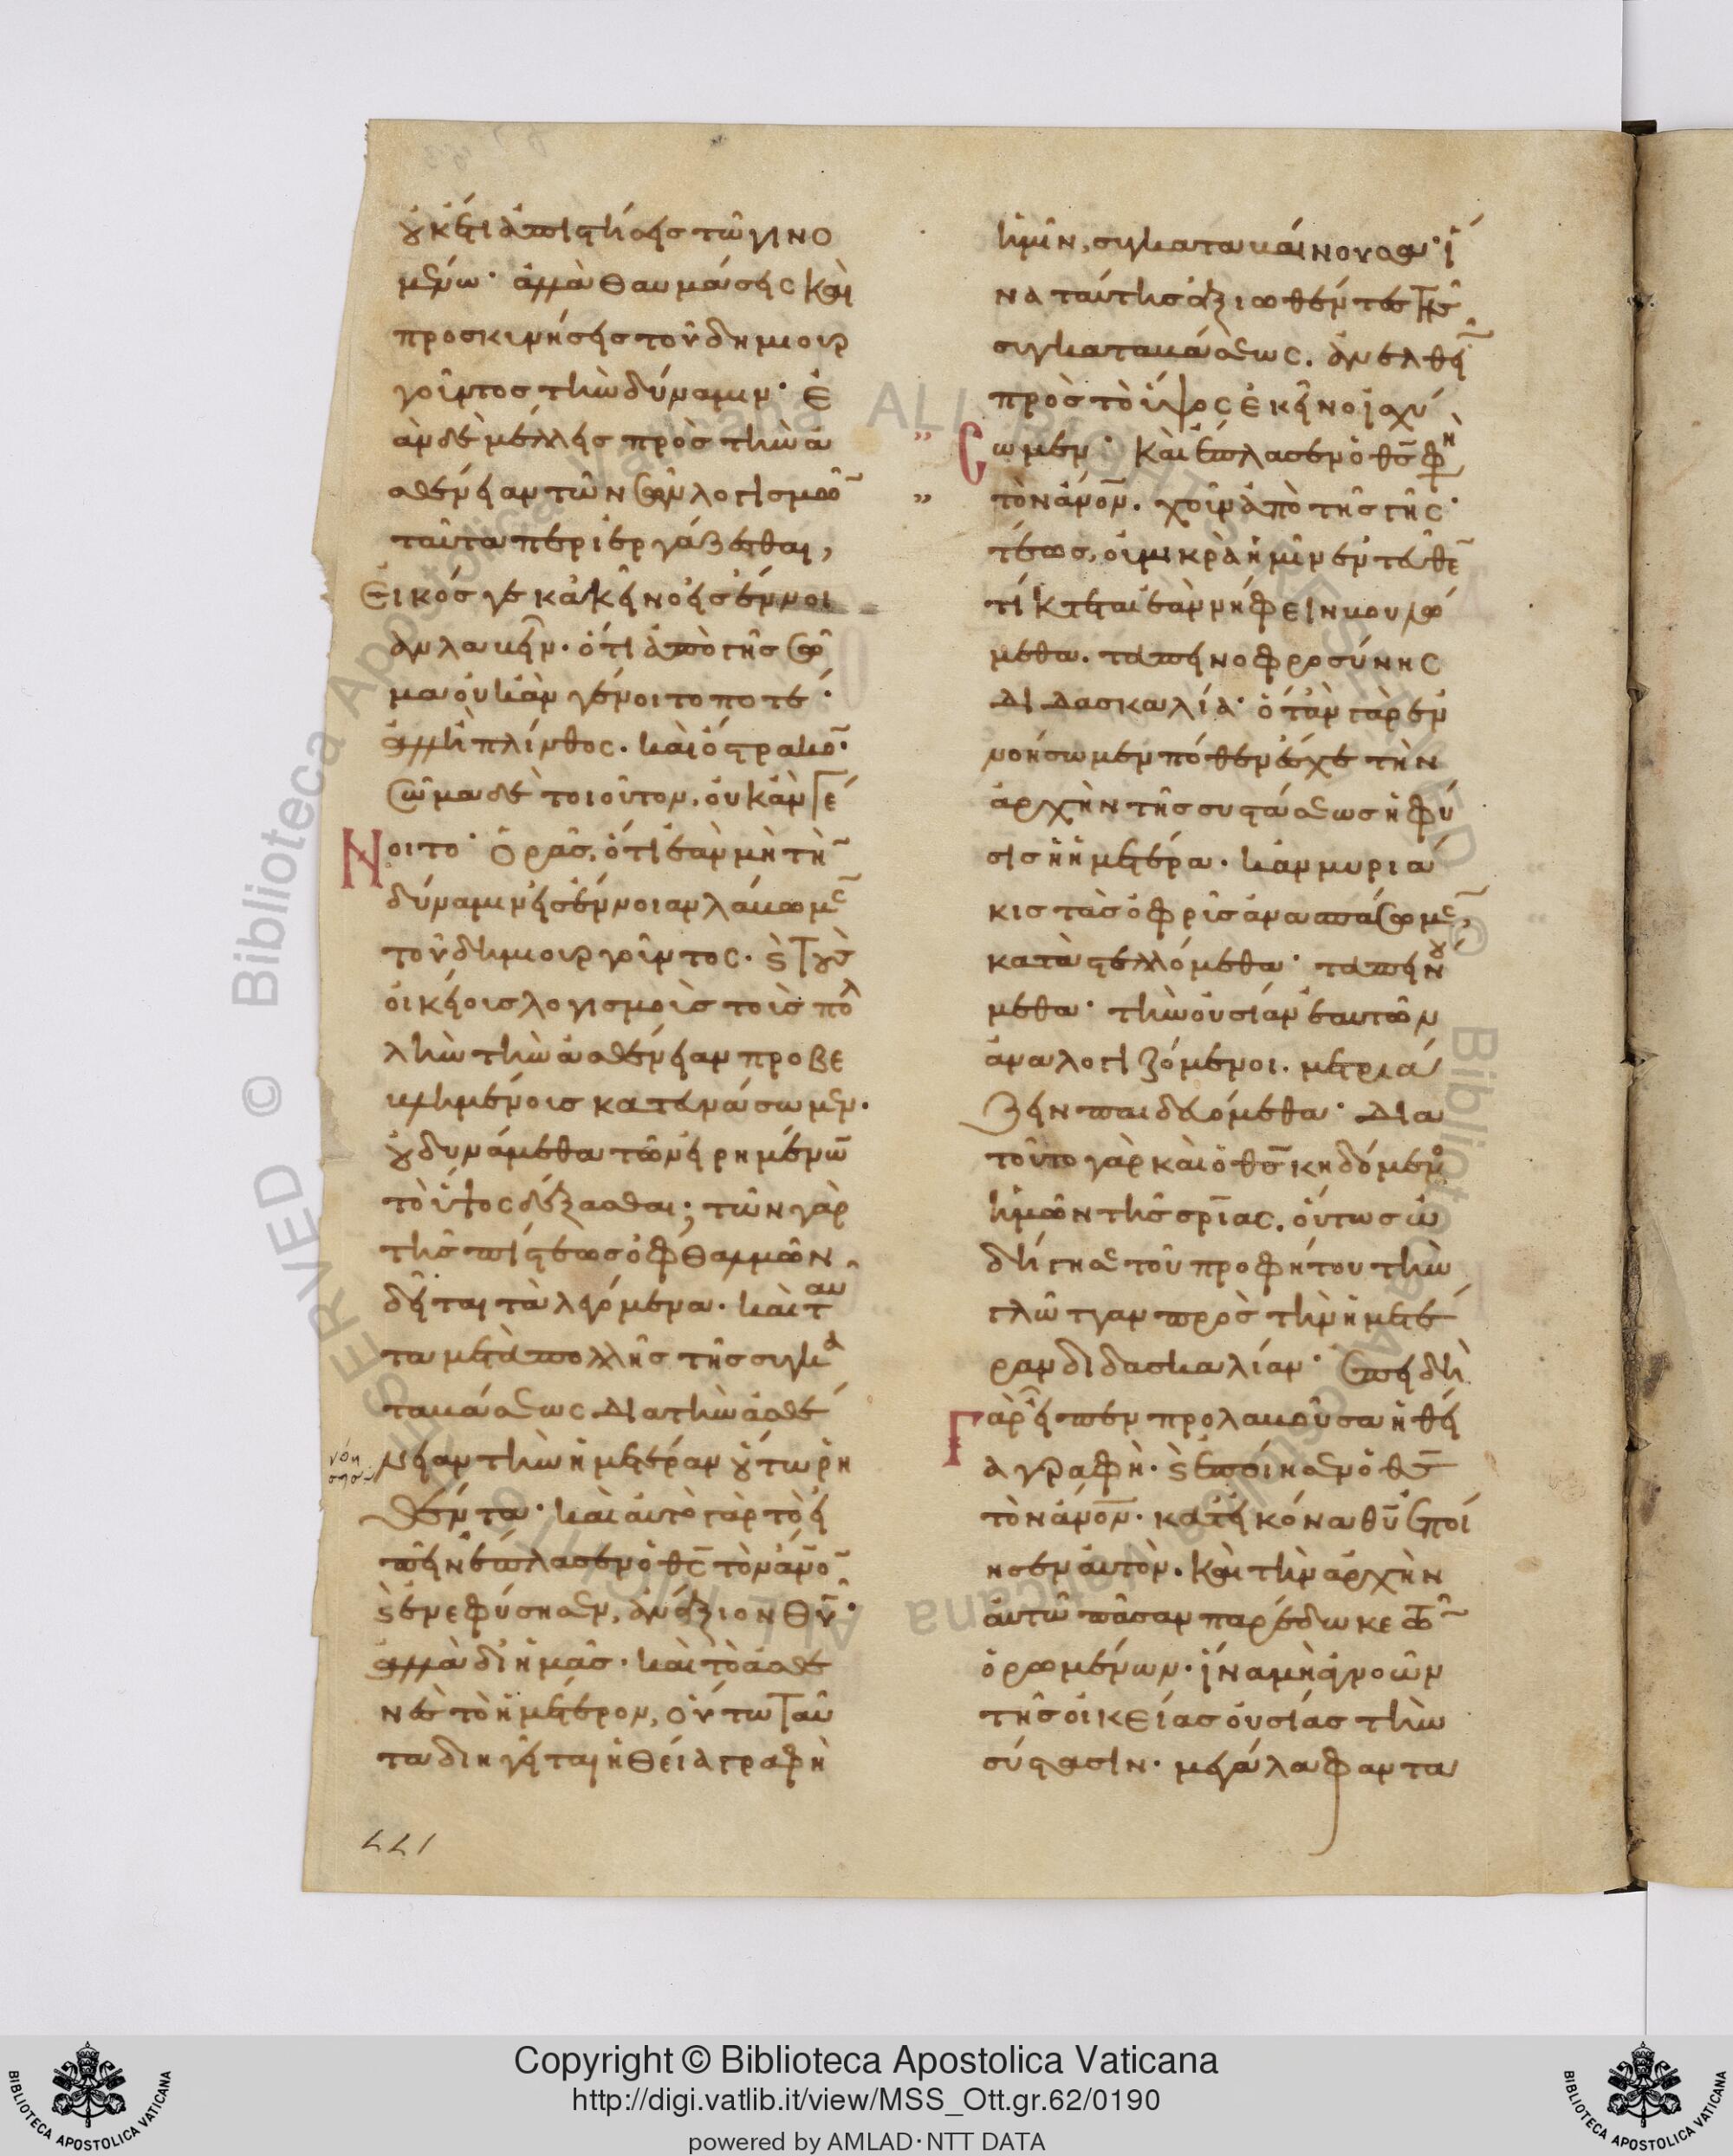 οὐκέτι ἀπιστήσεις τῶ γινο
μένω· ἀλλὰ θαυμάσεις καὶ
προσκυνήσεις τοῦ δημιουρ
γοῦντος τὴν δύναμιν· ἐ
ὰν δὲ μέλλεις πρὸς τὴν ἀ
σθένειαν τῶν σῶν λογισμῶ̅
ταῦτα περιεργάζεσθαι,
εἰκός γε κἀκεῖνο εἰς ἔννοι
αν λαβεῖν· ὅτι ἀπὸ γῆς σῶ
μα οὐκ ἂν γένοιτό ποτέ·
ἀλλ' ἢ πλίνθος· καὶ ὄστρακο̅·
σῶμα δὲ τοιοῦτον, οὐκ ἂν γέ
νοιτο· ὁρᾶς, ὅτι ἐὰν μὴ τὴ̅
δύναμιν εἰς ἔννοιαν λάβωμε̅
τοῦ δημιουργοῦντος· ϗ τοὺς
οἰκείους λογισμοὺς τοὺς πολ
λὴν τὴν ἀσθένειαν προβε
βλημένους κατευνάσωμεν·
οὐ δυνάμεθα τῶν εἰρημένω̅
τὸ ὕψος δέξασθαι; τῶν γὰρ
τῆς πίστεως ὀφθαλμῶν
δεῖται τὰ λεγόμενα· καὶ ταῦ
τα μετὰ πολλῆς τῆς συγκα
ταβάσεως διὰ τὴν ἀσθέ
νειαν τὴν ἡμετέραν οὕτω ῥη
θέντα· καὶ αὐτὸ γὰρ τὸ εἰ
πεῖν ἔπλασεν ὁ θς̅ τὸν ἄνο̅ν
ϗ ἐνεφύσησεν, ἀνάξιον θυ̅·
ἀλλὰ δι' ἡμᾶς· καὶ τὸ ἀσθε
νὲς τὸ ἡμέτερον, οὕτω ταῦ
τα διηγεῖται ἡ θεία γραφὴ
ἡμῖν, συγκαταβαίνουσα· ἵ
να ταύτης ἀξιωθέντες τῆς
συγκαταβάσεως, ἀνελθεῖ̅
πρὸς τὸ ὕψος ἐκεῖνο ἰσχύ
σωμεν· καὶ ἔπλασεν ὁ θς̅ φη
τὸν ἄνο̅ν· χοῦν ἀπὸ τῆς γῆς·
τέως, οὐ μικρὰ ἡμῖν ἐντεῦθε̅
τίκτεται ἐὰν νήφειν βουλώ
μεθα· ταπεινοφροσύνης
διδασκαλία· ὅταν γὰρ ἐν
νοήσωμεν πόθεν ἔσχε τὴν
ἀρχὴν τῆς συστάσεως ἡ φύ
σις ἡ ἡμετέρα· κἂν μυριά
κις τὰς ὀφρῦς ἀνασπάσωμε̅,
καταστελλόμεθα· ταπεινού
μεθα· τὴν οὐσίαν ἑαυτῶν
ἀναλογιζόμενοι· μετριά
ζειν παιδευόμεθα· διὰ
τοῦτο γὰρ καὶ ὁ θς̅ κηδόμενος
ἡμῶν τῆς σρ̅ίας, οὕτως ὡ
δήγησε τοῦ προφήτου τὴν
γλῶτταν πρὸς τὴν ἡμετέ
ραν διδασκαλίαν· ἐπειδὴ
γὰρ εἶπεν προλαβοῦσα ἡ θεί
α γραφὴ· ϗ ἐποίησεν ὁ θς̅
τὸν ἄνο̅ν· κατ' εἰκόνα θυ̅ ἐποί
ησεν αὐτὸν· καὶ τὴν ἀρχὴν
αὐτῶ πᾶσαν παρέδωκε τῶ̅
ὁρωμένων· ἵνα μὴ ἀγνοῶν
τῆς οἰκείας οὐσίας τὴν
σύστασιν· μεγάλα φαντα
177
Copyright © Biblioteca Apostolica Vaticana
http://digi.vatlib.it/view/MSS_Ott.gr.62/0190
powered by AMLAD·NTT DATA